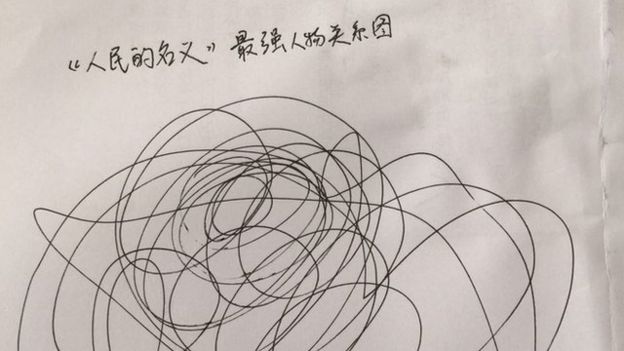 《人民的名义》最强人物关系图